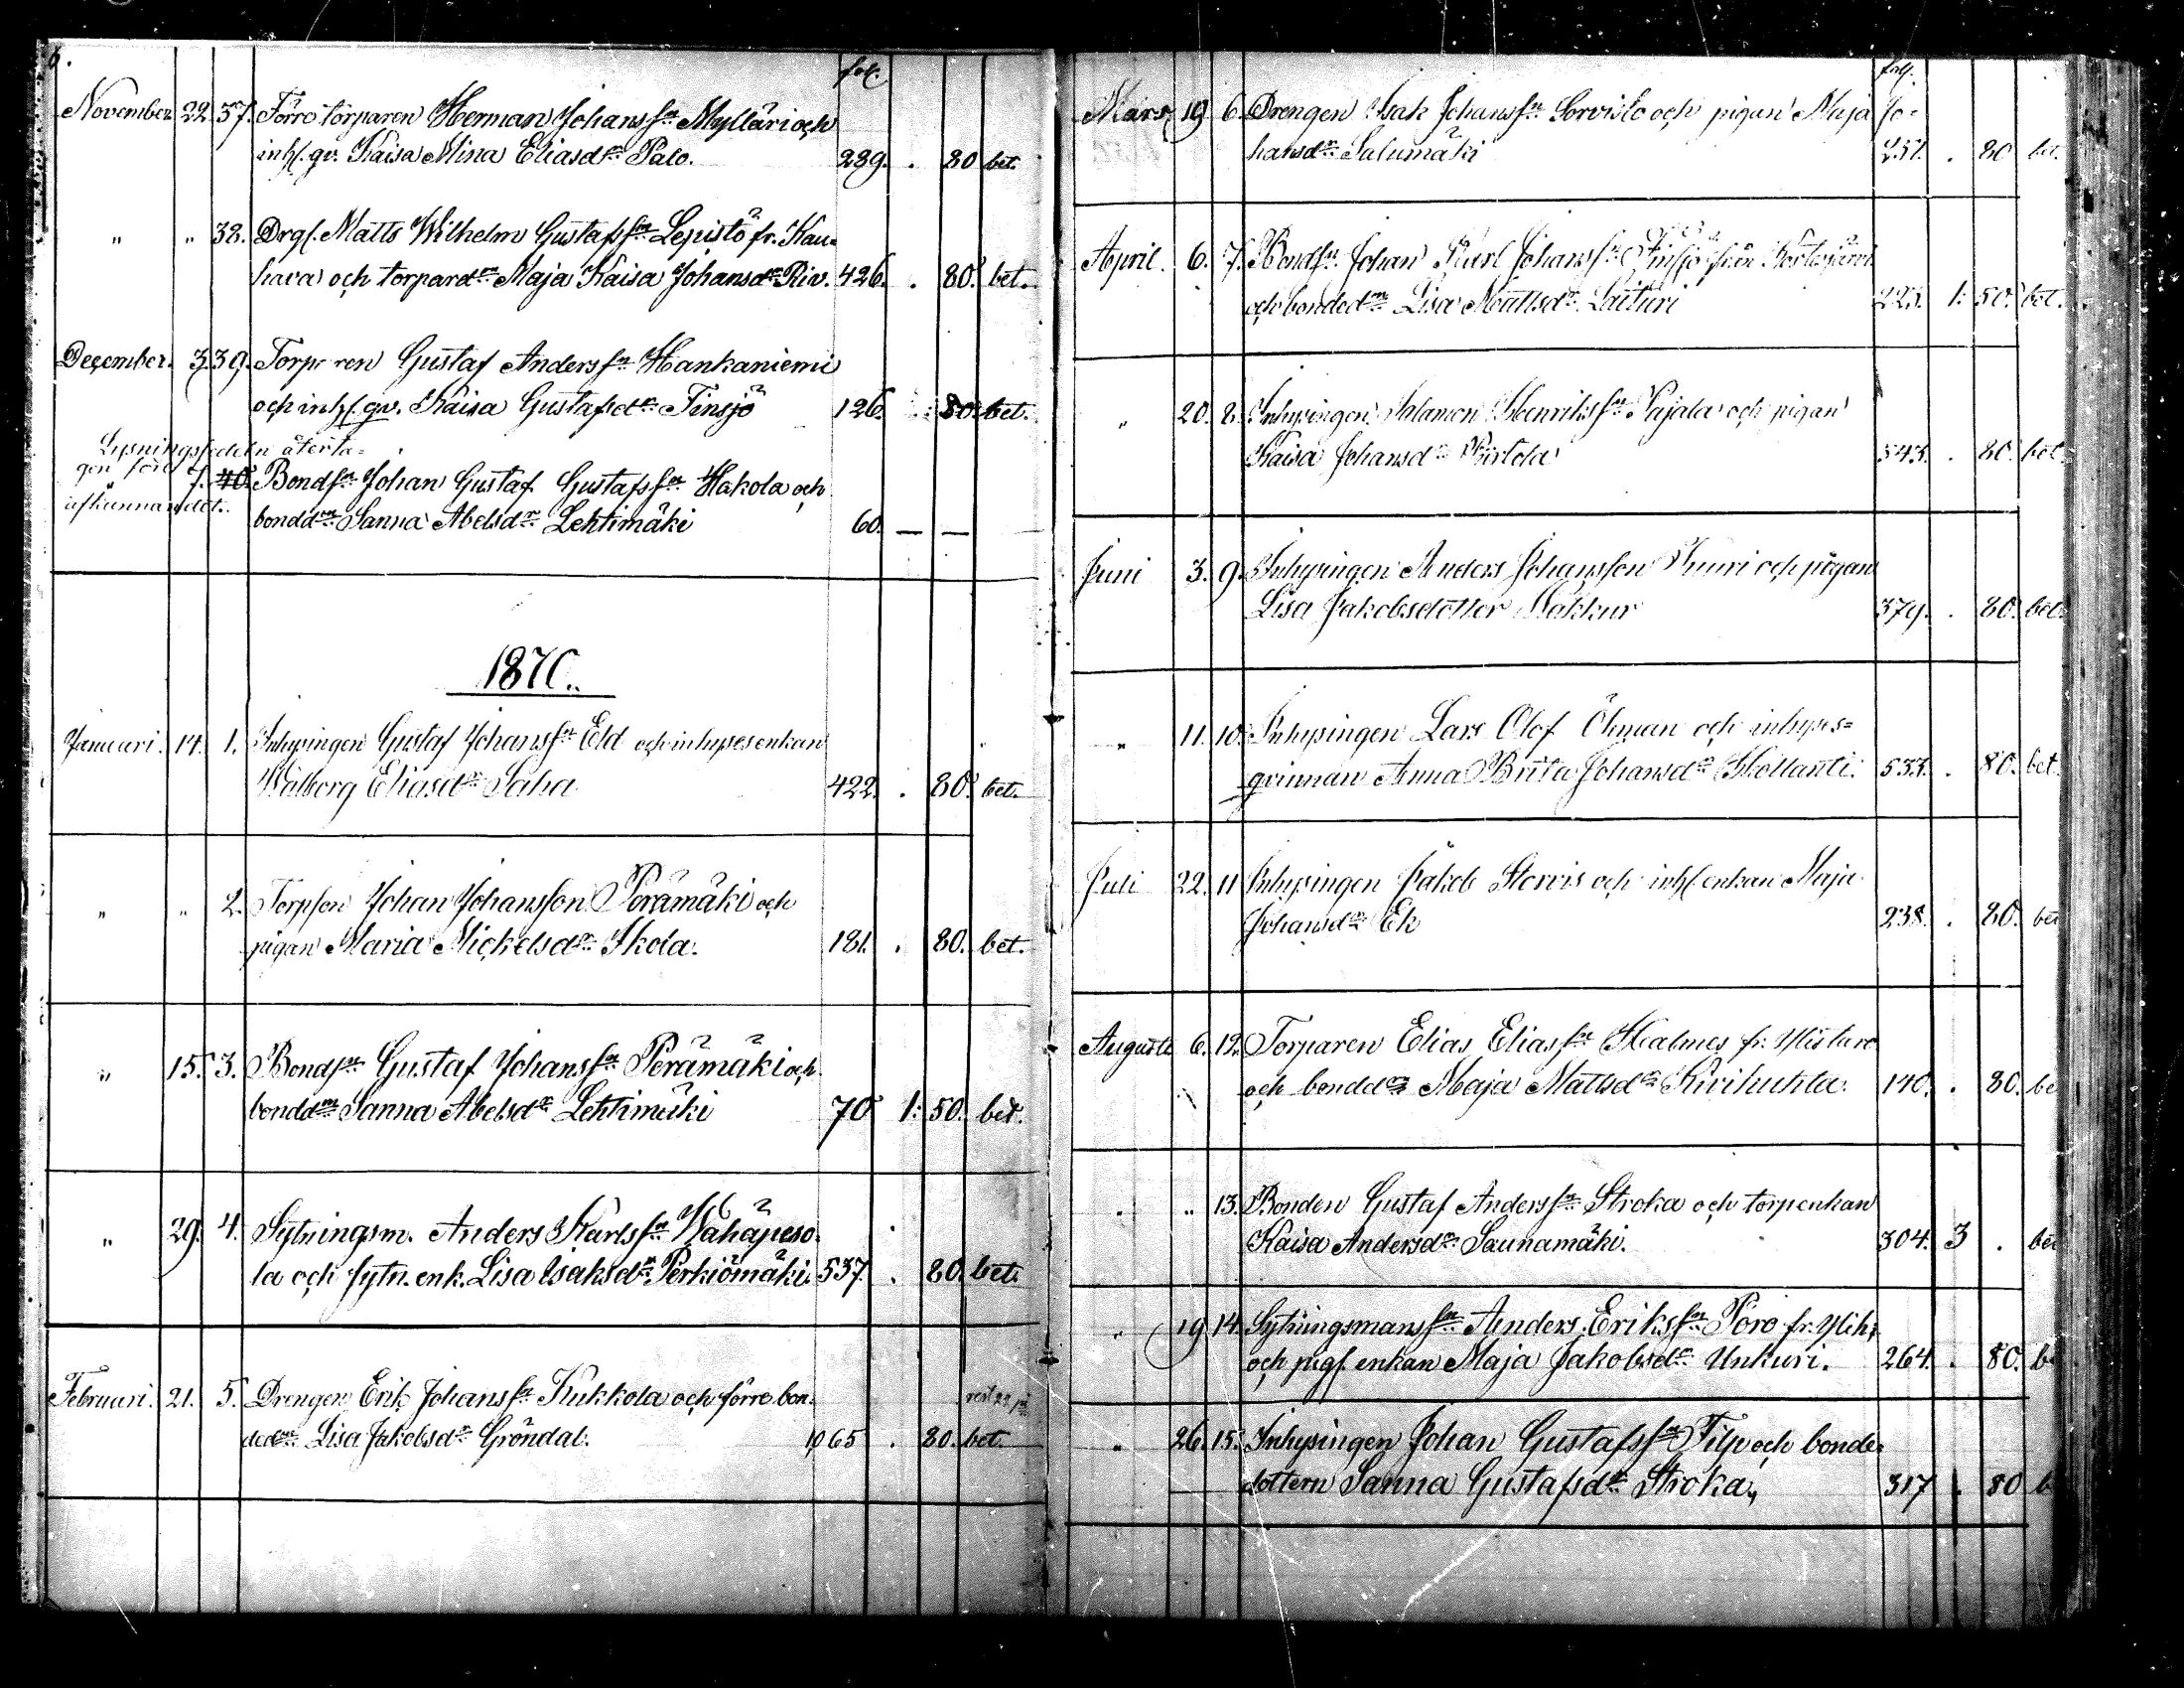 6.
fol.
November 22. 37. Förre torparen Herman Johansson Mylläri och
inhs. qv. Kaisa Mina Eliasdr Palo. 289. . 80 bet.
" " 38. Drgs. Matts Wilhelm Gustafssn Lepistö fr. Kau-
hava och torpardn Maja Kaisa Johansdr Riv. 426. . 80. bet.
December. 3. 39. Torparen Gustaf Anderssn Hankaniemi
och inhs. qv. Kaisa Gustafsdr Finsjö 126. . 80. bet.
Lysningssedeln återta-
gen före
7. 40. Bondsn Johan Gustaf Gustafssn Hakola och
afkunnandet.
bonddn Sanna Abelsdr Lehtimäki 60. — —
1870.
Januari. 14. 1. Inhysingen Gustaf Johanssn Eld och inhysesenkan
Walborg Eliasdr Saha 422. . 80. bet.
" " 2. Torpson Johan Johansson Perämäki och
pigan Maria Mickelsdr Skola. 181. . 80. bet.
" 15. 3. Bondsn Gustaf Johanssn Perämäki och
bonddn Sanna Abelsdr Lehtimäki 70 1: 50. bet.
" 29. 4. Sytningsm. Anders Karlssn Wähäpeso-
la och sytn. enk. Lisa Isaksdr Perkiömäki. 537. . 80. bet.
Februari. 21. 5. Drengen Erik Johanssn Kukkola och förre bon-
dedn Lisa Jakobsdr Gröndal. 1065 . 80. bet.
fol.
Mars 19 6. Drengen Isak Johanssn Sorvisto och pigan Maja Jo-
hansdr Salumäki 257. . 80 bet.
April. 6. 7. Bondsn Johan Karl Johanssn Finsjö från
och bondedn Lisa Mattsdr Laituri 223. 1: 50. bet.
" 20. 8. Inhysingen Salamon Henrikssn Pajala och pigan
Kaisa Johansdr 543. . 80. bet.
Juni 3. 9. Inhysingen Anders Johansson och pigan
Lisa Jakobsdotter Makkur 379. . 80. bet.
" 11. 10. Inhysingen Lars Olof Öhman och inhyses-
qvinnan Anna Brita Johansdr Hollanti. 533. . 80. bet.
Juli 22. 11 Inhysingen Jakob Storvis och inhs. enkan Maja
Johansdr Ek 238. . 80. bet
Augusti 6. 12. Torparen Elias Eliassn Halmes fr. Ylistaro
och bonddn Maja Mattsdr Kivihuhta. 140. . 80. be
" " 13. Bonden Gustaf Anderssn Stroka och torpenkan
Kaisa Andersdr Saunamäki. 304. 3 . bet
" 19 14. Sytningsmanssn Anders Erikssn Poro fr. Ylih:
och pigs. enkan Maja Jakobsdr Unkuri. 264. . 80. b
" 26. 15. Inhysingen Johan Gustafssn Filp och bonde-
dottern Sanna Gustafsdr Stroka, 317 . 80 b